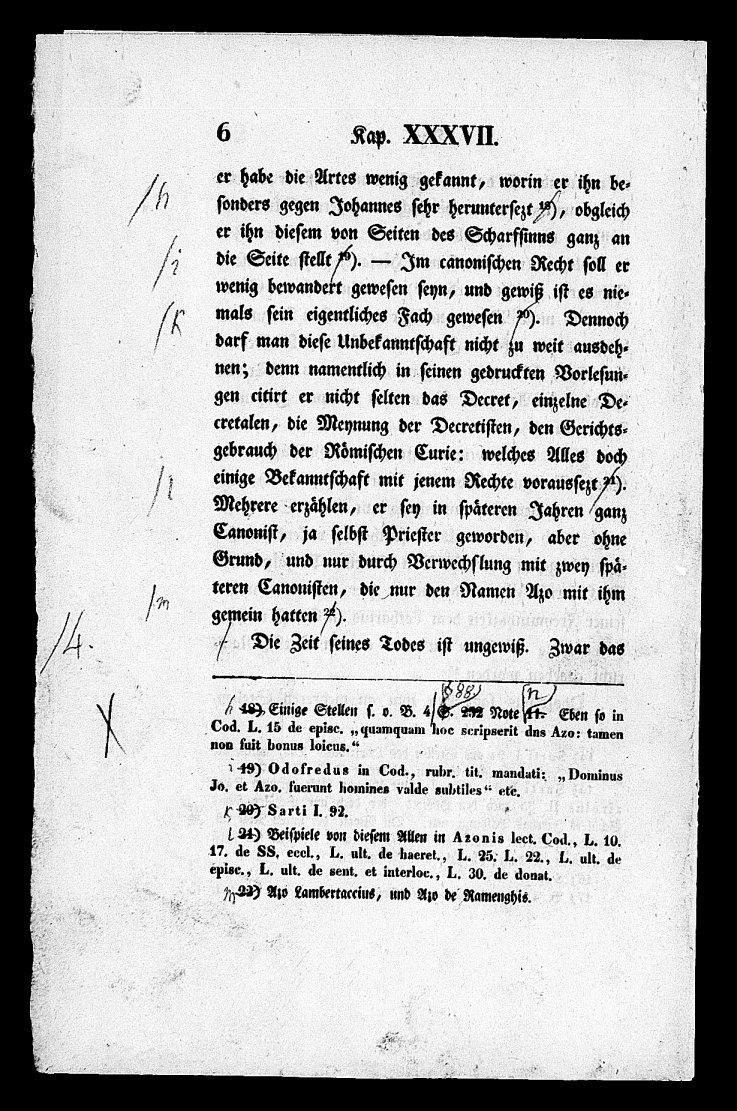 6 Kap. XXXVII.
er habe die Artes wenig gekannt, worin er ihn be-
/h
sonders gegen Johannes sehr heruntersezt 18), obgleich
er ihn diesem von Seiten des Scharfsinns ganz an
/i
die Seite stellt 19). — Im canonischen Recht soll er
wenig bewandert gewesen seyn, und gewiß ist es nie-
/k
mals sein eigentliches Fach gewesen 20). Dennoch
darf man diese Unbekanntschaft nicht zu weit ausdeh-
nen; denn namentlich in seinen gedruckten Vorlesun-
gen citirt er nicht selten das Decret, einzelne De-
cretalen, die Meynung der Decretisten, den Gerichts-
gebrauch der Römischen Curie: welches Alles doch
/l
einige Bekanntschaft mit jenem Rechte voraussezt 21).
Mehrere erzählen, er sey in späteren Jahren ganz
Canonist, ja selbst Priester geworden, aber ohne
Grund, und nur durch Verwechslung mit zwey spä-
/m
teren Canonisten, die nur den Namen Azo mit ihm
gemein hatten 22).
/4.
Die Zeit seines Todes ist ungewiß. Zwar das
n
h 18) Einige Stellen s. o. B. 4 S. 292 Note 11. Eben so in
X
Cod. L. 15 de episc. „quamquam hoc scripserit dns Azo: tamen
non fuit bonus loicus.“
i 19) Odofredus in Cod., rubr. tit. mandati: „Dominus
Jo. et Azo. fuerunt homines valde subtiles“ etc.
k 20) Sarti I. 92.
l 21) Beispiele von diesem Allen in Azonis lect. Cod., L. 10.
17. de SS. eccl., L. ult. de haeret., L. 25. L. 22., L. ult. de
episc., L. ult. de sent. et interloc., L. 30. de donat.
m 22) Azo Lambertaccius, und Azo de Ramenghis.